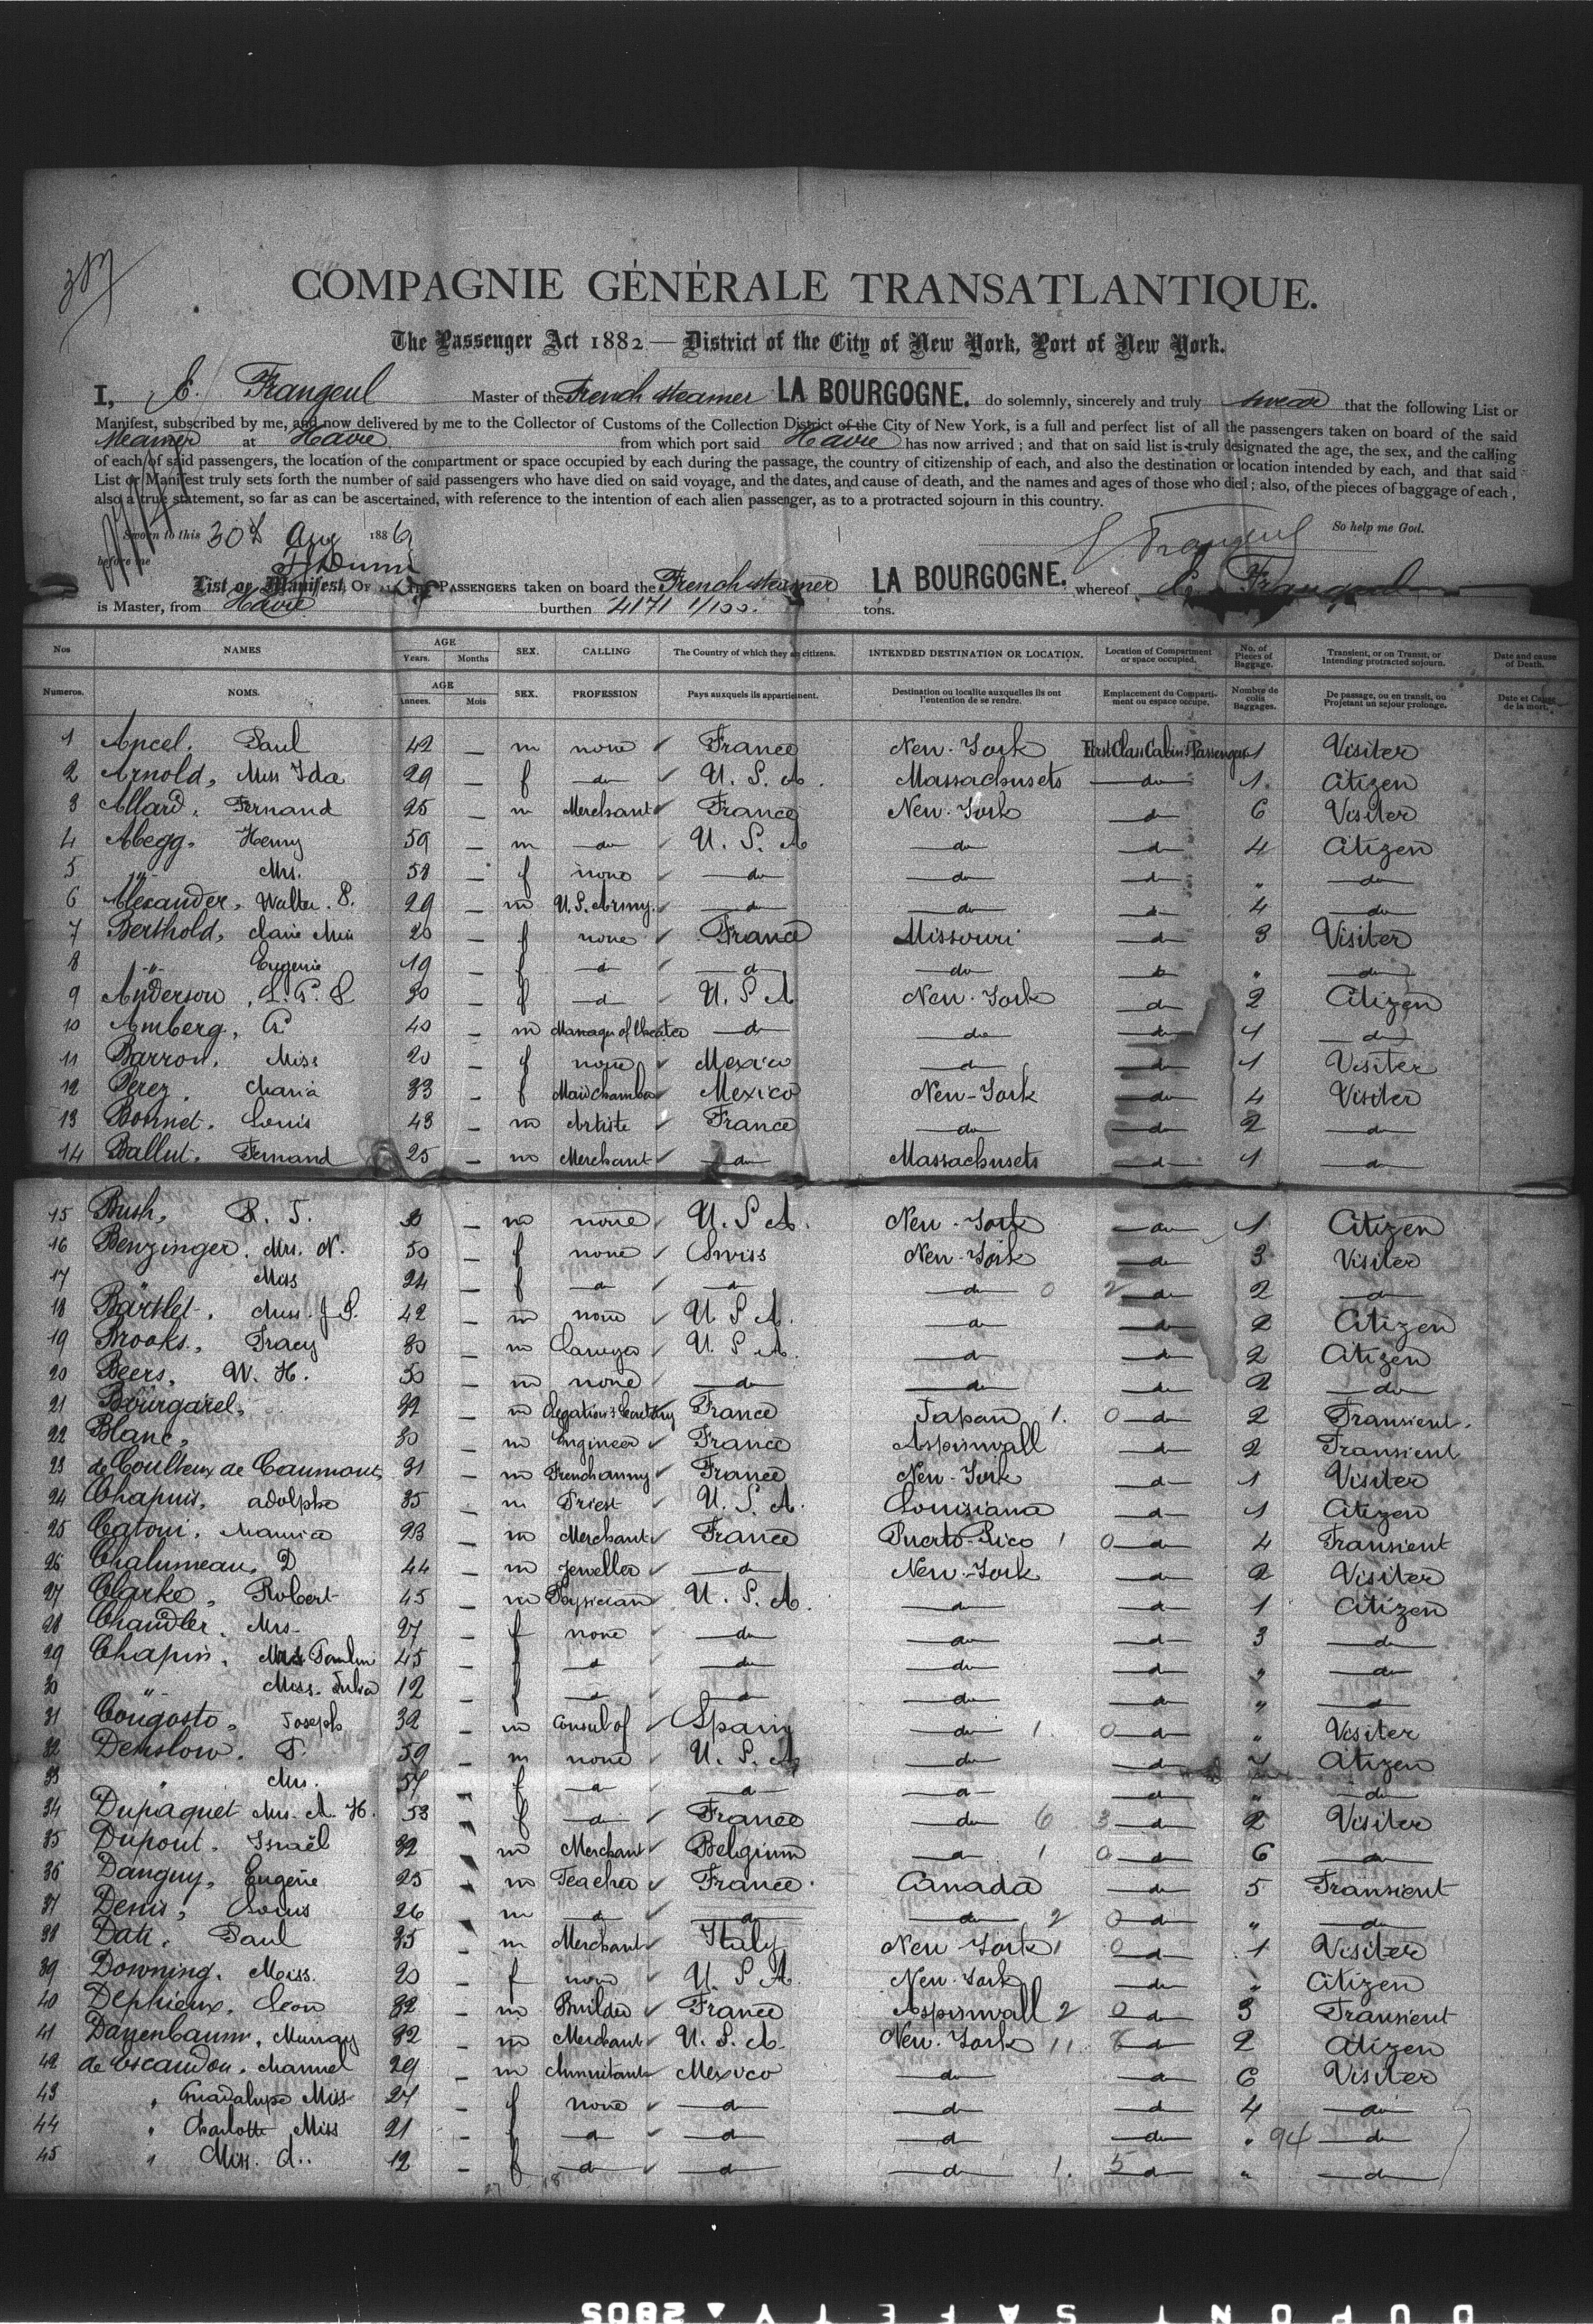 COMPAGNIE GÉNÉRALE TRANSATLANTIQUE.
The Passenger Act 1882 — District of the City of New York, Port of New York.
I, E. Frangeul Master of the French steamer LA BOURGOGNE. do solemnly, sincerely and truly swear that the following List or
Manifest, subscribed by me, and now delivered by me to the Collector of Customs of the Collection District of the City of New York, is a full and perfect list of all the passengers taken on board of the said
steamer at Havre from which port said Havre has now arrived; and that on said list is truly designated the age, the sex, and the calling
of each of said passengers, the location of the compartment or space occupied by each during the passage, the country of citizenship of each, and also the destination or location intended by each, and that said
List or Manifest truly sets forth the number of said passengers who have died on said voyage, and the dates, and cause of death, and the names and ages of those who died; also, of the pieces of baggage of each,
also a true statement, so far as can be ascertained, with reference to the intention of each alien passenger, as to a protracted sojourn in this country.
So help me God.
Sworn to this 30th Aug 1886 E Frangeul
before me
List or Manifest, OF ALL THE PASSENGERS taken on board the French steamer LA BOURGOGNE. whereof E. Frangeul
is Master, from Havre burthen 4171 1/100. tons.
Nos NAMES AGE Years. Months SEX. CALLING The Country of which they are citizens. INTENDED DESTINATION OR LOCATION. Location of Compartment or space occupied. No. of Pieces of Baggage. Transient, or on Transit, or Intending protracted sojourn. Date and cause of Death.
Numeros. NOMS. AGE Annees. Mois SEX. PROFESSION Pays auxquels ils appartiennent. Destination ou localite auxquelles ils ont l'entention de se rendre. Emplacement du Compartiment ou espace occupe. Nombre de colis Baggages. De passage, ou en transit, ou Projetant un sejour prolonge. Date et Cause de la mort.
1 Ancel. Paul 42 — m none France New-York First Class Cabin's Passengers 1 Visiter
2 Arnold, Miss Ida 29 — f do U.S.A. Massachusets do 1. Citizen
3 Allard, Fernand 25 — m Merchant France New-York do 6 Visiter
4 Abegg. Henry 59 — m do U.S.A do do 4 Citizen
5 " Mrs. 58 — f none do do do " do
6 Alexander, Walter. S. 29 — m U.S. Army. do do do 4 do
7 Berthold, Claire Miss 20 — f none France Missouri do 3 Visiter
8 " Eugenie 19 — f do do do do " do
9 Anderson, 30 — f do U.S.A New-York do 2 Citizen
10 Amberg, G 40 — m Manager of theater do do do 1 do
11 Barron, Miss 20 — f none Mexico do do 1 Visiter
12 Perez, Maria 33 — f Maid chamber Mexico New-York do 4 Visiter
13 Bonnet. Louis 43 — m Artiste France do do 2 do
14 Ballut. Fernand 25 — m Merchant do Massachusets do 1 do
15 Bush, R. T. — m none U.S.A. New-York do 1 Citizen
16 Benzinger, Mrs. N. 50 — f none Swiss New-York do 3 Visiter
17 " Miss 24 — f do do do 0 2 do 2 do
18 Bartlet, J.S. 42 — m none U.S.A. do do 2 Citizen
19 Brooks, Tracy 30 — m Lawyer U.S.A. do do 2 Citizen
20 Beers, W. H. 50 — m none do do do 2 do
21 Bourgarel, 32 — m Legation's Secretary France Japan 1. 0 do 2 Transient.
22 Blanc, 30 — m Engineer France Aspinwall do 2 Transient
23 de Coulteux de Caumont, 31 — m French army France New-York do 1 Visiter
24 Chapuis, Adolphe 35 — m Priest U.S.A. Louisiana do 1 Citizen
25 Catoni. Maurice 23 — m Merchant France Puerto-Rico 1 0 do 4 Transient
26 Chalumeau, D 44 — m Jeweller do New-York do 2 Visiter
27 Clarke, Robert 45 — m Physician U.S.A. do do 1 Citizen
28 Chandler, Mrs. 27 — f none do do do 3 do
29 Chapin, 45 — f do do do do " do
30 " Miss. Julia 12 — f do do do do " do
31 Congosto, Joseph 32 — m Consul of Spain do 1. 0 do " Visiter
32 Denslow. T. 59 — m none U.S.A do do Citizen
33 " Mrs. 57 — f do do do do " do
34 Dupaquet Mrs. A. H. 53 — f do France do 6 3 do 2 Visiter
35 Dupont, Israël 32 — m Merchant Belgium do 1 0 do 6 do
36 Danguy, Eugène 25 — m Teacher France. Canada do 5 Transient
37 Denis, Louis 26 — m do do do 2 0 do " do
38 Dati, Paul 35 — m Merchant Italy New York 1 0 do 1 Visiter
39 Downing, Miss. 20 — f none U.S.A. New-York do " Citizen
40 Dephieux, Leon 32 — m Builder France Aspinwall 2 0 do 3 Transient
41 Dannenbaum, Murray 32 — m Merchant U.S.A. New-York 11. 8 do 2 Citizen
42 de Escandon, Manuel 29 — m Mexico do do 6 Visiter
43 " Guadalupe Miss 27 f none do do do 4 do
44 " Charlotte Miss 21 — f do do do do " 94 do
45 " Miss. d.. 12 — f do do do 1. 5 do " do
18
DUPONT SAFETY ▲ 2805